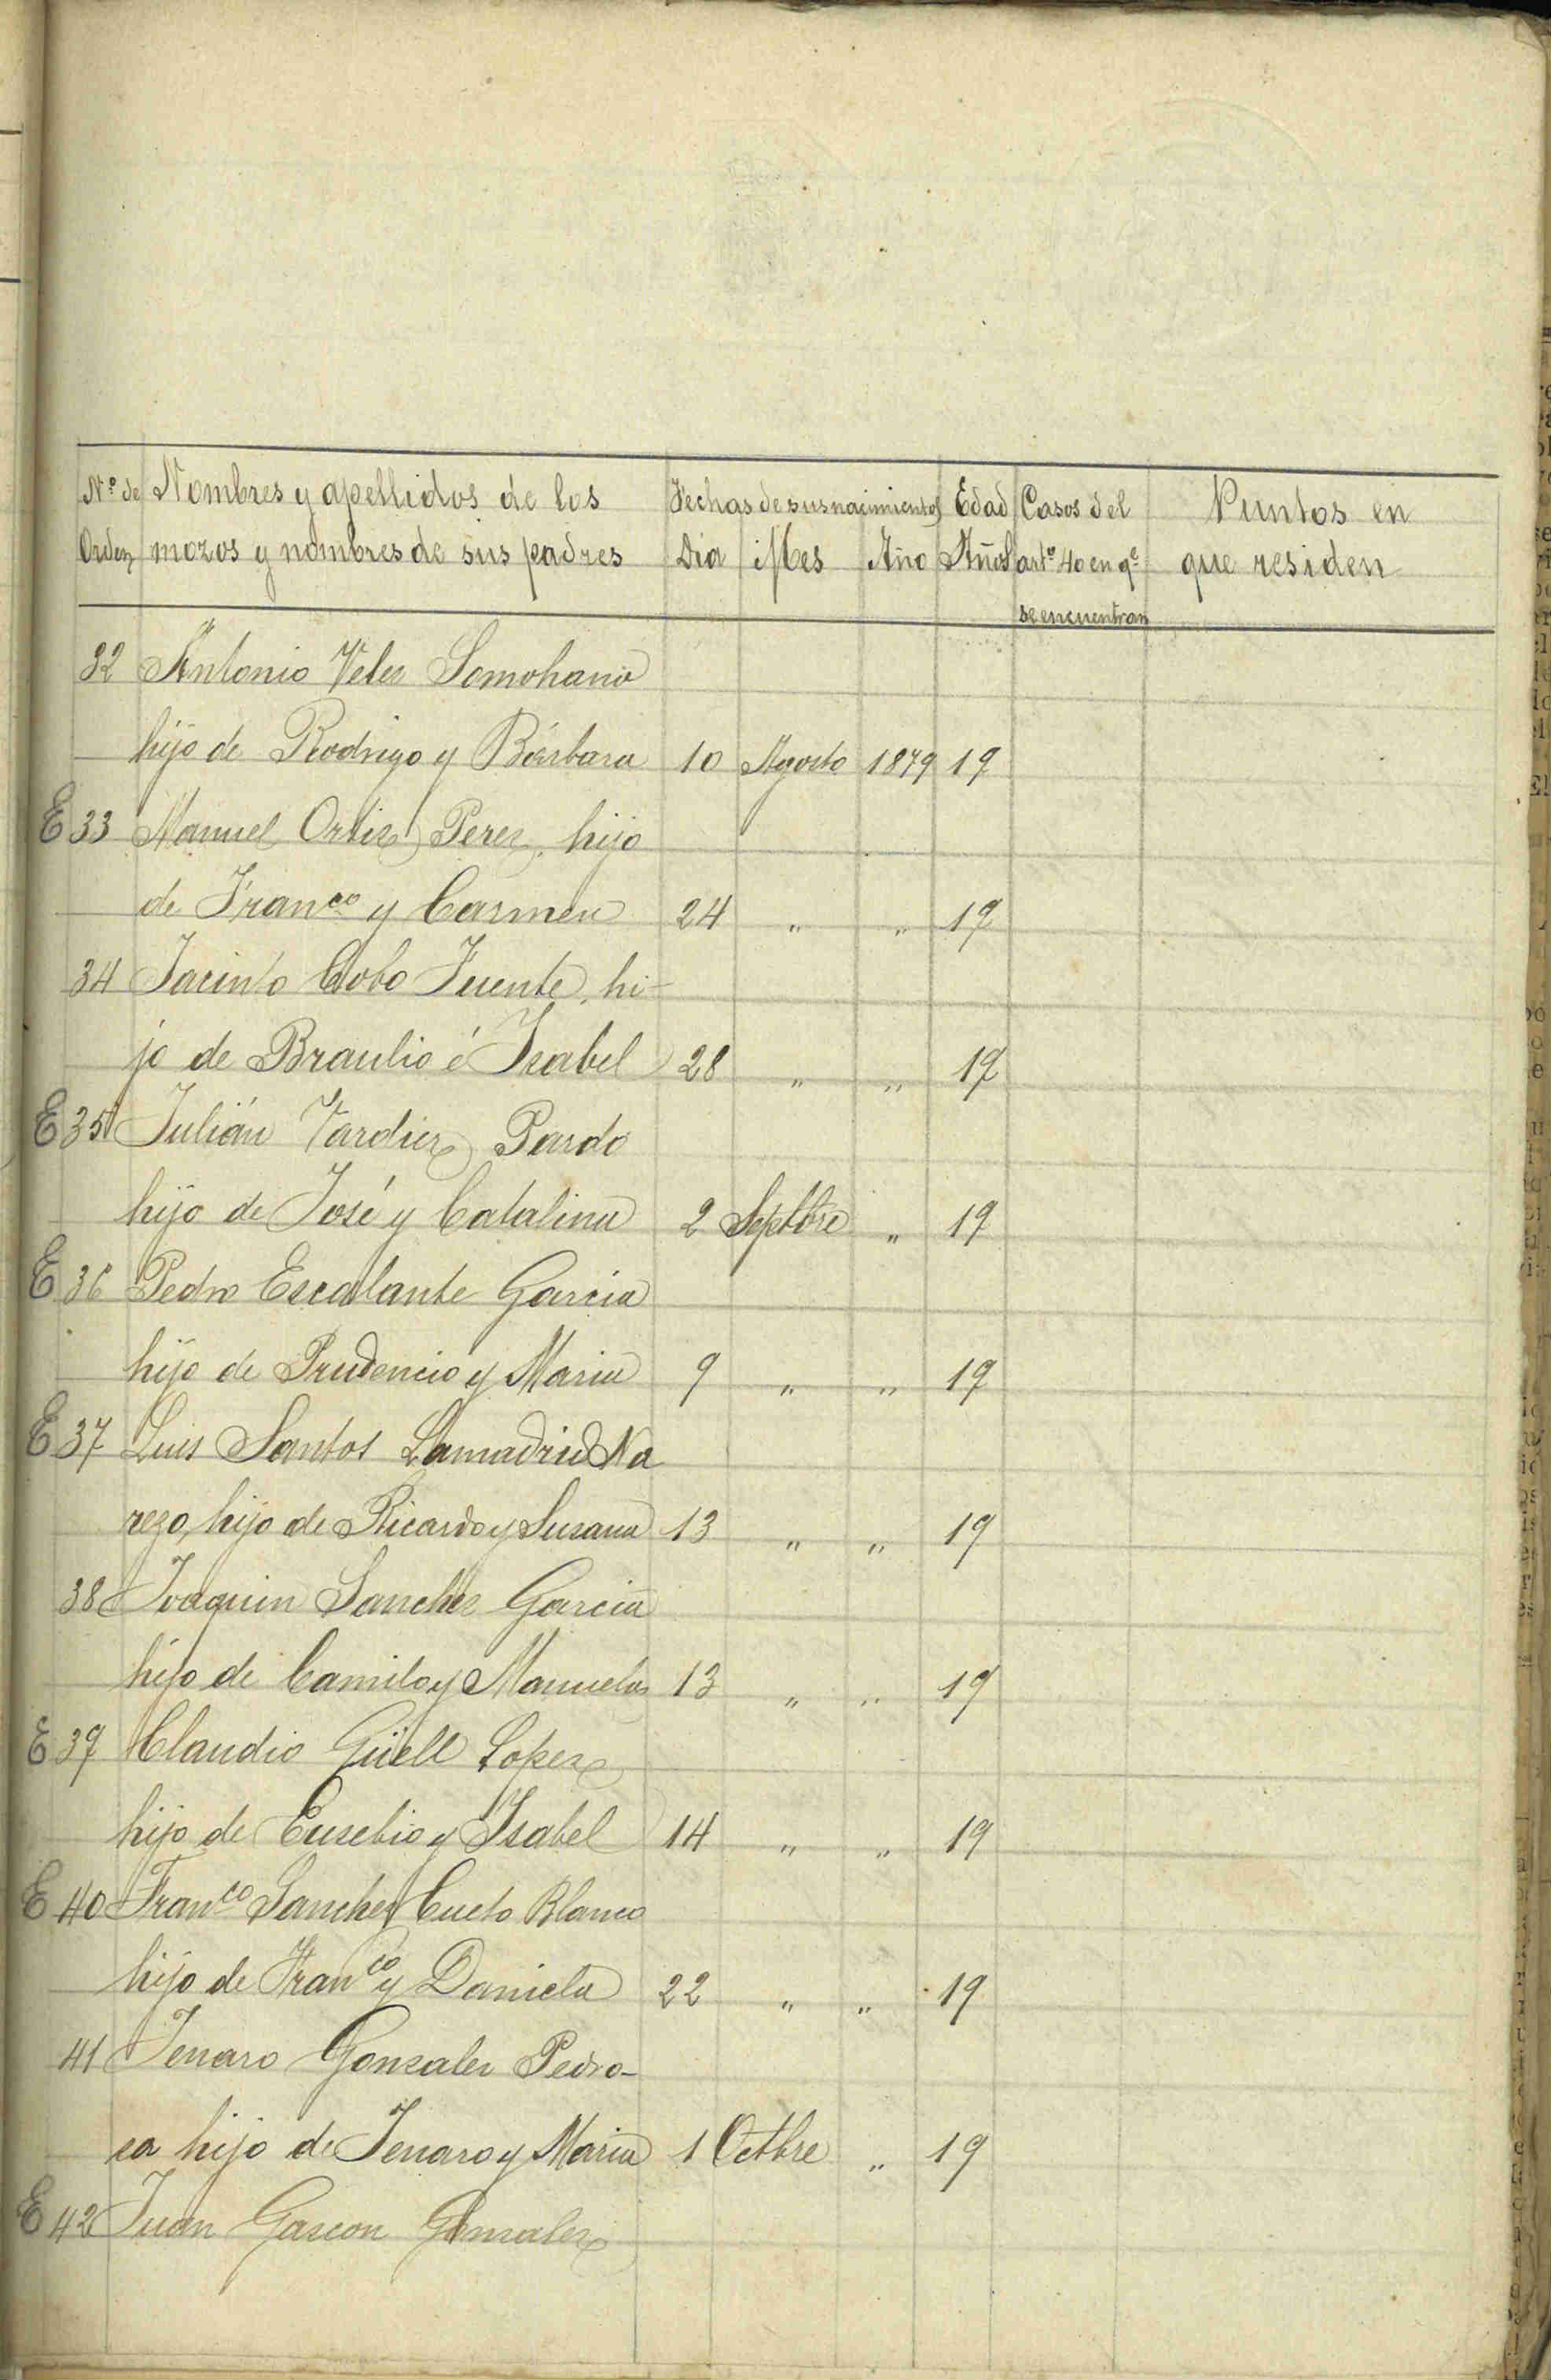 Nº de Nombres y apellidos de los Fechas de sus nacimientos Edad Casos del Puntos en
Orden mozos y nombres de sus padres Dia Mes Año Años artº 40 en qe que residen
se encuentran
32 Antonio Velez Somohano
hijo de Rodrigo y Bárbara 10 Agosto 1879 19
E 33 Manuel Ortiz Perez, hijo
de Franco y Carmen 24 " " 19
34 Jacinto Cobo Fuente, hi-
jo de Braulio é Isabel 28 " " 19
E 35 Julián Pardo
hijo de José y Catalina 2 Septbre " 19
E 36 Pedro Escalante Garcia
hijo de Prudencio y Maria 9 " " 19
E 37 Luis Santos Lamadrid Na
rezo, hijo de Ricardo y Susana 13 " " 19
38 Joaquin Sanchez Garcia
hijo de Camilo y Manuela 13 " " 19
E 39 Claudio Güell Lopez
hijo de Eusebio y Isabel 14 " " 19
E 40 Franco Sanchez Cueto Blanco
hijo de Franco y Daniela 22 " " 19
41 Jenaro Gonzalez Pedro-
sa hijo de Jenaro y Maria 1 Octbre " 19
E 42 Juan Gascon Gonzalez